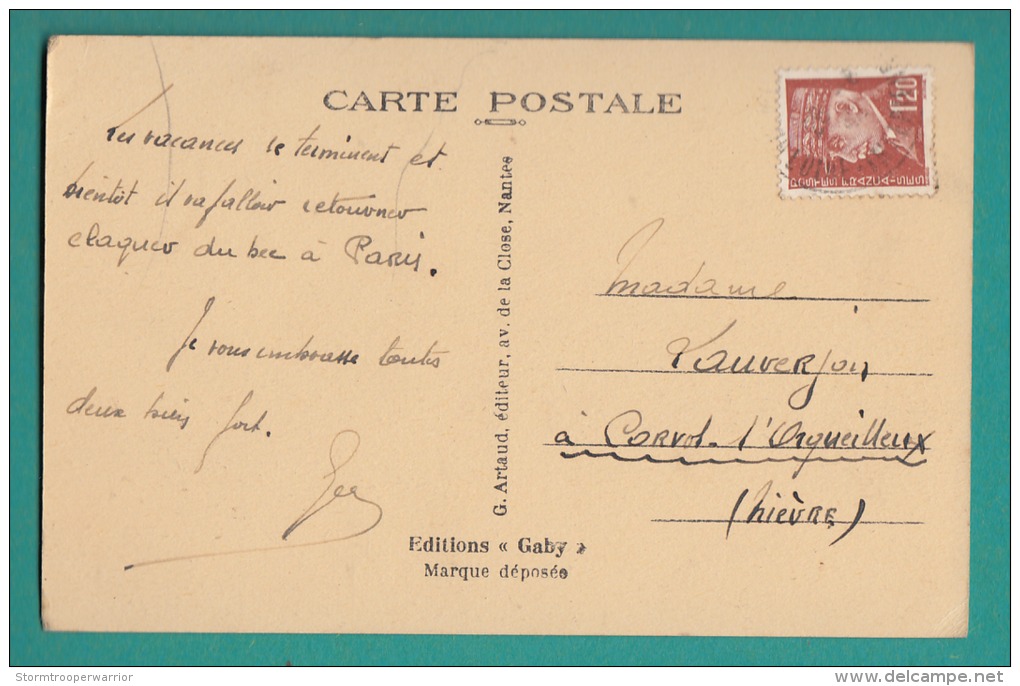 CARTE POSTALE
Les vacances se terminent et
bientôt il va falloir retourner
claquer du bec à PARIS.
Je vous embrasse toutes
deux bien fort.
G. Artaud, éditeur, av. de la Close, Nantes
Editions « Gaby »
Marque déposée
1f20
POSTES FRANÇAISES
Madame
Vauverjon
à CORVOL-l'Orgueilleux
(NIÈVRE)
Stormtrooperwarrior
www.delcampe.net